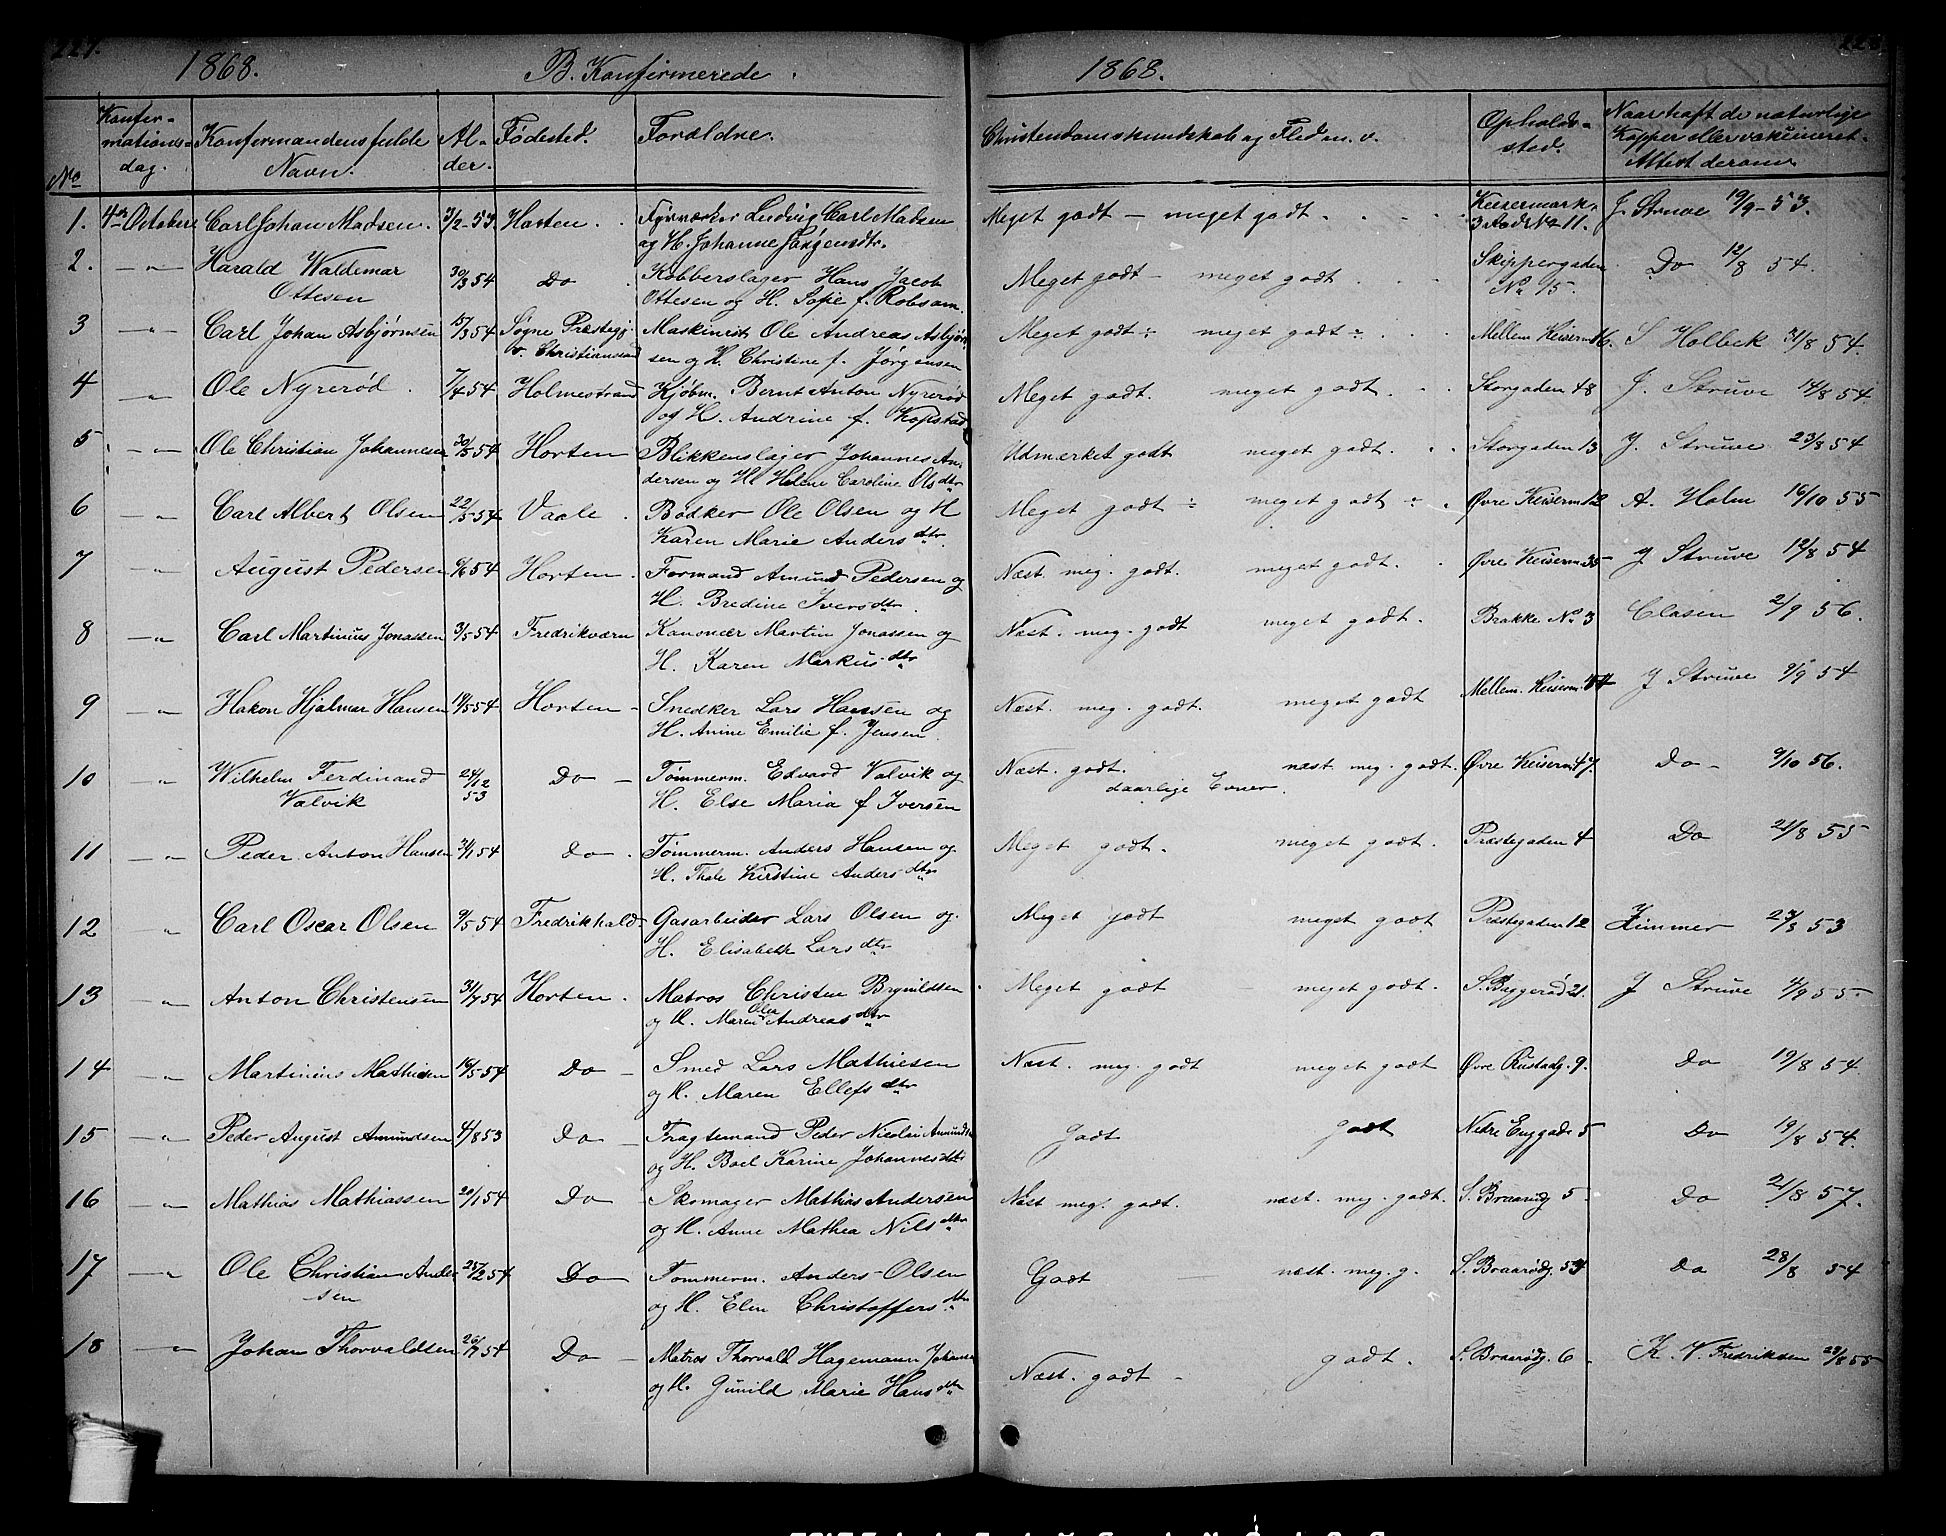 227.
1868. B. Konfirmerede. 1868.
No Konfirmationsdag. Konfirmandens fulde Navn. Alder. Fødested. Forældre. Christendomskundskab og Flid m. v. Opholdssted. Naar haft de naturlige Kopper eller vakcineret. Attest derom
1. 4de October Carl Johan Madsen. 3/2-53. Horten. Fyrværker Ludvig Carl Madsen Meget godt - meget godt Keisermark. J. Struve 19/9-53.
og H. Johanne Jørgensdtr. 3 Rode No 11.
2. -"- Harald Waldemar 30/3 54 Do Kobberslager Hans Jacob Meget godt - meget godt Skippergaden Do 12/8 54.
Ottesen Ottesen og H. Sofie f. Robsam. No 15.
3 -"- Carl Johan Asbjørnsen 15/3 54 Sogne Præstegj. Maskinist Ole Andreas Asbjørn- Meget godt÷ meget godt÷ Mellem Keiserm 16. S Holbek 31/8 54.
v. Christianssand sen og H. Christine f. Jørgensen
4 -"- Ole Nyrerød. 7/4 54 Holmestrand Kjøbm. Bernt Anton Nyrerød Meget godt. meget godt. Storgaden 48 J. Struve 14/8 54.
og H. Andrine f. Kopstad
5 -"- Ole Christian Johannesen 30/5 54 Horten Blikkenslager Johannes An- Udmærket godt meget godt. Storgaden 13 J. Struve 23/8 54
dersen og H. Helene Caroline Olsdtr
6 -"- Carl Albert Olsen 22/5 54 Vaale. Bødker Ole Olsen og H Meget godt ÷ meget godt ÷ Øvre Keiserm 12 A. Holm 16/10 55
Karen Marie Andersdtr.
7 -"- August Pedersen 6/6 54 Horten. Formand Amund Pedersen og Næst. meg. godt. meget godt. Øvre Keiserm 35 J Struve 12/8 54
H. Bredine Iversdtr.
8 -"- Carl Martinius Jonassen 3/5 54 Fredrikværn Kanonær Martin Jonassen og Næst. meg. godt meget godt. Brakke No 3 Clasen 2/9 56.
H. Karen Markusdtr
9 -"- Hakon Hjalmar Hansen 19/5 54 Horten - Snedker Lars Hansen og Næst. meg. godt. meget godt Mellem. Keiserm. J Struve 9/9 54
H. Anine Emilie f. Jensen.
10 -"- Wilhelm Ferdinand 24/12 Do - Tømmerm. Edvard Valvik og Næst. godt. næst. meg. godt. Øvre Keiserm 47 Do - 9/10 56.
Valvik 53 H. Else Maria f Iversen daarlige Evner.
11 -"- Peder Anton Hansen 21/1 54 Do. Tømmerm. Anders Hansen og Meget godt. meget godt. Præstegaden 4 Do 21/8 55
H. Thale Kirstine Andersdtr
12 -"- Carl Oscar Olsen 9/5 54 Fredrikhald Gasarbeider Lars Olsen og Meget godt meget godt Præstegaden 12 Zimmer 23/3 53
H. Elisabeth Larsdtr
13 -"- Anton Christensen 31/7 54 Horten. Matros Christen Brynildsen Meget godt meget godt. S. Baggerød 21. J Struve 4/9 55.
og H. Maren Olea Andreasdtr
14 -"- Martinius Mathiesen 16/5 54 Do - Smed Lars Mathiesen Næst. meg. godt meget godt Øvre Rustadg. 9. Do 19/8 54.
og H. Maren Ellefsdtr
15 -"- Peder August Amundsen 4/8 53 Do - Fragtemand Peder Nicolai Amunds. Godt godt Nedre Enggade 5 Do 19/8 54.
og H. Boel Karine Johannesdtr
16 -"- Mathias Mathiassen 20/1 54 Do Skomager Mathias Andersen Næst meg. godt. næst. meg. godt. S. Braarødg 5. Do 21/8 57.
og H. Anne Mathea Nilsdtr
17 -"- Ole Christian Ander- 25/2 54 Do Tømmerm. Anders Olsen Godt næst. meg. g. S. Braarødg. 54 Do 28/8 54
sen og H. Elen Christoffersdtr
18 -"- Johan Thorvaldsen 26/7 54 Do - Matros Thorvald Hagemann Johansen Næst. godt - godt. S. Braarødg. 6 - K. V. Fredriksen 29/8 55
og H. Gunild Marie Hansdtr